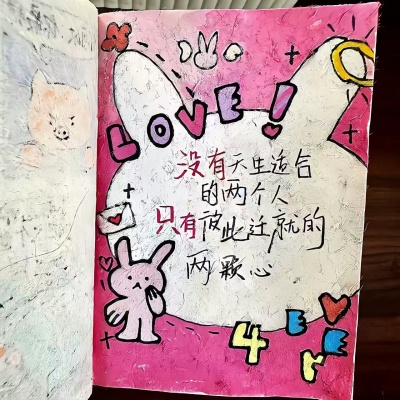 LOVE!
没有天生适合
的两个人
只有彼此迁就的
两颗心
4 EVER